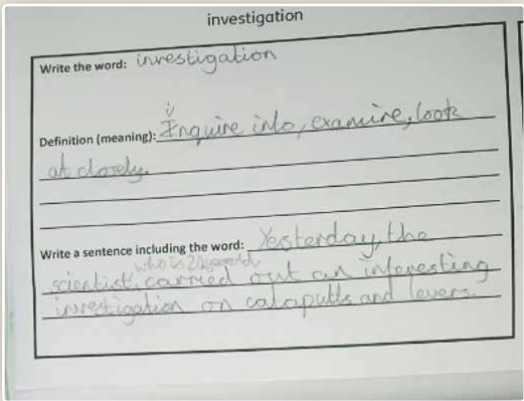 investigation
Write the word: investigation
Definition (meaning): Inquire into, examine, look
at closely.
Write a sentence including the word: Yesterday, the
who is 20 years old,
scientist, carried out an interesting
investigation on catapults and levers.